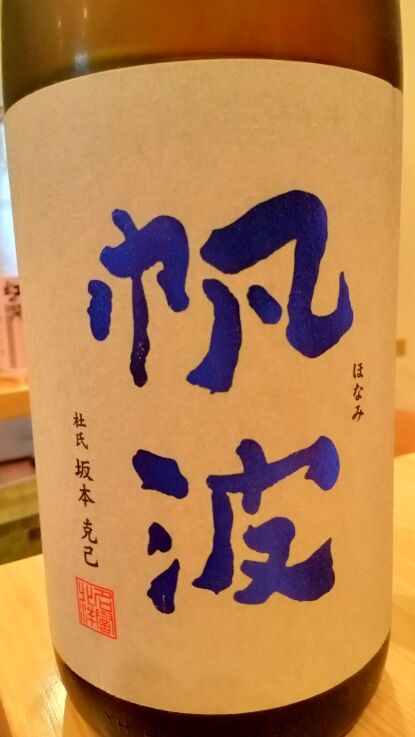 帆波
ほなみ
杜氏 坂本 克己